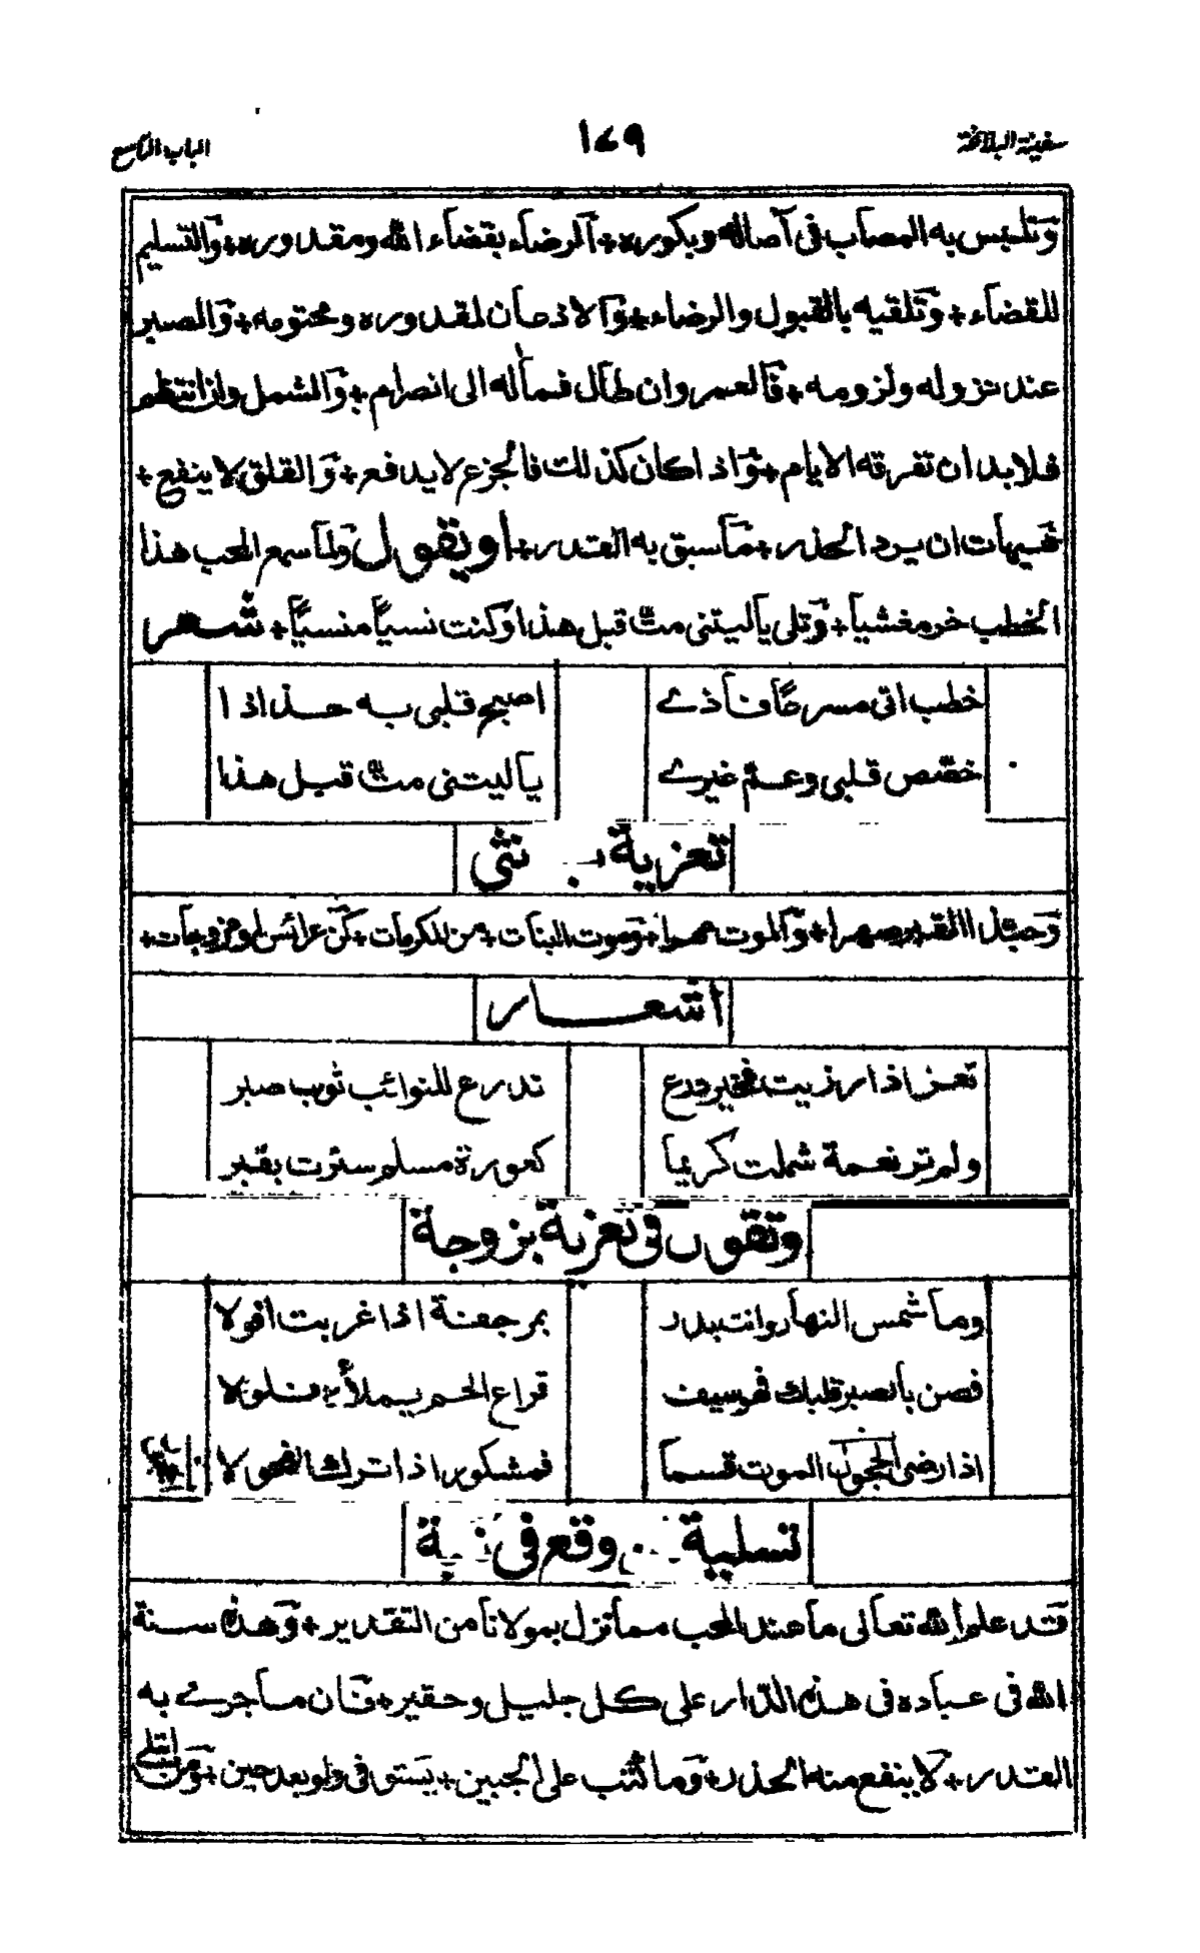 سفينة البلاغة ١٤٩ الباب التاسع
وتلبس به المصاب فى آصاله وبكوره + الرضاء بقضاء الله ومقدوره + والتسليم
للقضاء + وتلقيه بالقبول والرضاء + والاذعان لمقدوره ومحتومه + والصبر
عند نزوله ولزومه + فالعمر وان طال فمآله الى انصرام + والشمل وان انتظم
فلابد ان تفرقه الايام + واذا كان كذلك فالجزع لا يدفع + والقلق لا ينفع +
فهيهات ان يرد الحذر + ما سبق به القدر + او يقول ولما سمع المحب هذا
الخطب خر مغشيا + وتلى ياليتنى مت قبل هذا وكنت نسيًا منسيًا + شعر
خطب اتى مسرعًا فاذے اصبح قلبى به حذاذا
خصّص قلبى وعمّ غيرے ياليتنى متّ قبل هذا
تعزية نثى
صهرا + والموت + وموت البنات + من المكرمات +
اشعار
تعز اذا رزيت فخير درع تدرع للنوائب ثوب صبر
ولم تر نعمة شملت كريما كعورة مسلم سترت بقبر
وتقول فى تعزية بزوجة
وما شمس النهار وانت بدر بمرجعنة اذا غربت افولا
فصن بالصبر قلبك فهو سيف قراع الهم يملأه فلولا
اذا رضى الموت قسما فمشكور اذا ترك الفحولا
تسلية وقع فى
قد علم الله تعالى ما عند المحب مما نزل بمولانا من التقدير + وهذه سنة
الله فى عباده فى هذه الدّار على كل جليل وحقير + فان ما جرے به
القدر + لا ينفع منه الحذر + وما كتب على الجبين + يستوفى ولو بعد حين + ومن ابتلى